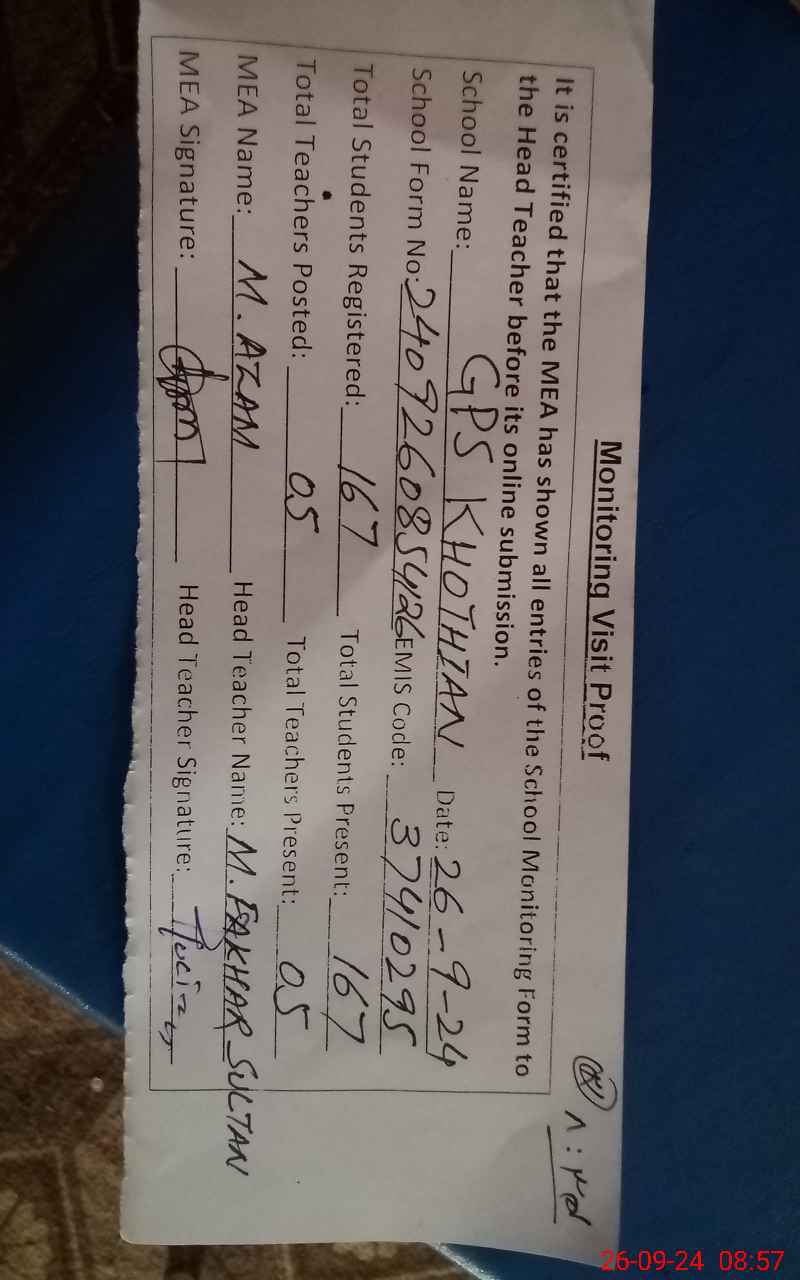 Monitoring Visit Proof
It is certified that the MEA has shown all entries of the School Monitoring Form to
the Head Teacher before its online submission.
School Name: GPS KHOTHIAN Date: 26-9-24
School Form No: 2409260854126 EMIS Code: 37410295
Total Students Registered: 167 Total Students Present: 167
Total Teachers Posted: 05 Total Teachers Present: 05
MEA Name: M. AZAM Head Teacher Name: M. FAKHAR SULTAN
MEA Signature: Head Teacher Signature:
26-09-24 08:57